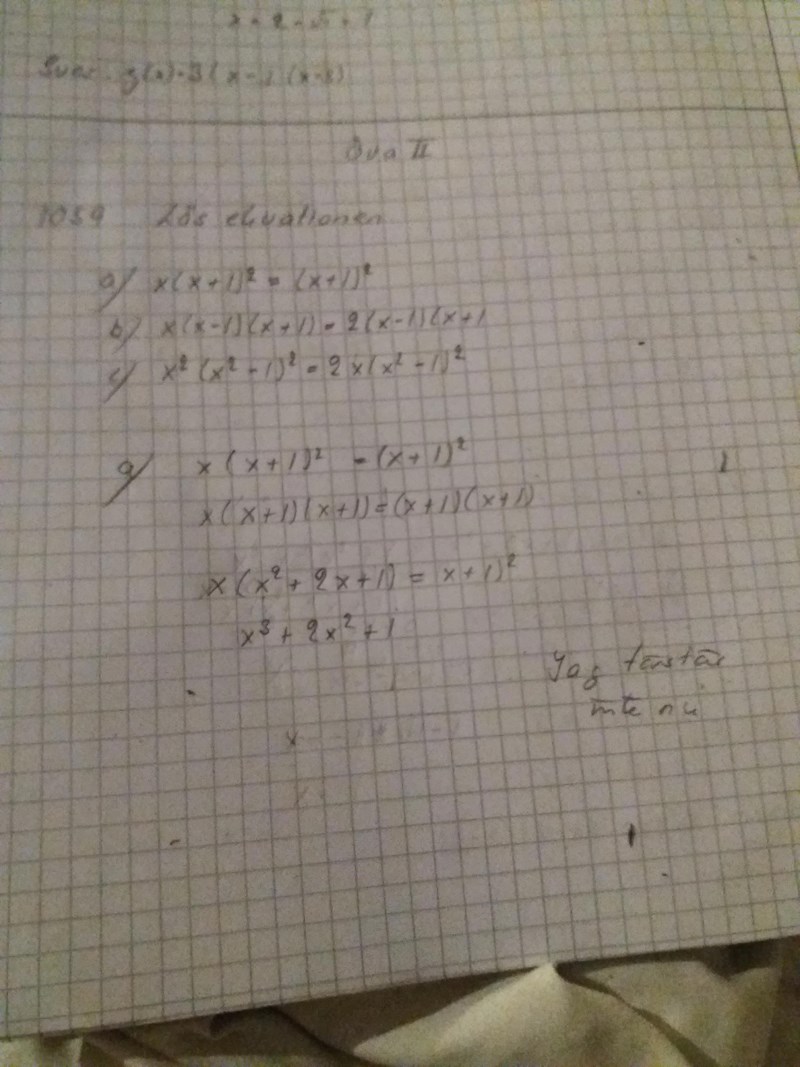 x = 2 - √ + 1
Svar: g(x) = 3(x-1)(x-3)
Öva II
1059 Lös ekvationen
a) x(x+1)² = (x+1)²
b) x(x-1)(x+1) = 2(x-1)(x+1
c) x²(x²-1)² = 2x(x²-1)²
a) x(x+1)² = (x+1)²
x(x+1)(x+1) = (x+1)(x+1)
x(x²+2x+1) = x+1)²
x³+2x²+1
Jag förstår
inte nu
x